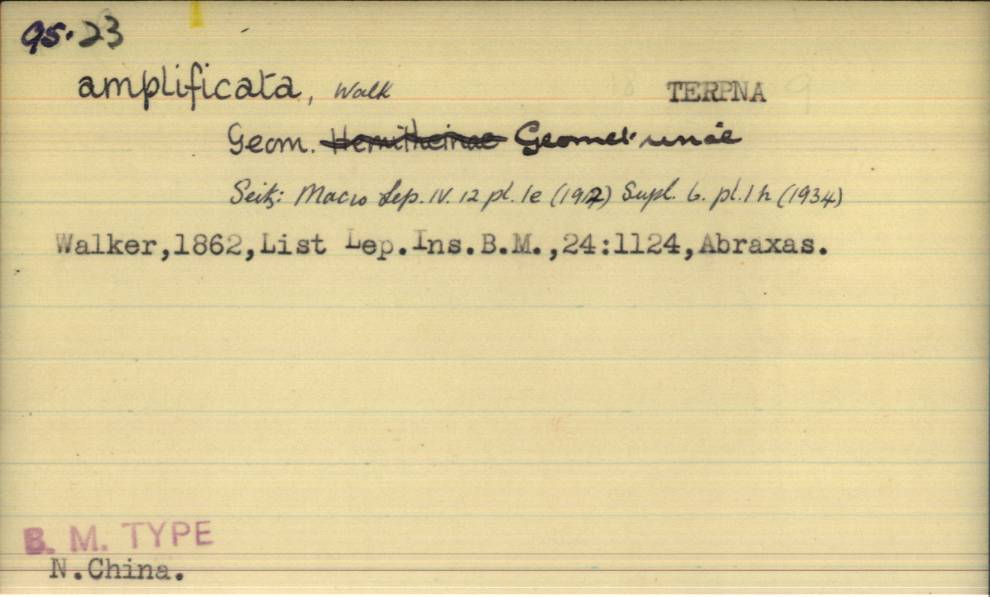 95.23
amplificata, Walk TERPNA
Geom. Hemitheinae Geometrinae
Seitz: Macro Lep. IV. 12 pl. 1e (1912) Supl. 6. pl. 1h (1934)
Walker,1862,List Lep.Ins.B.M.,24:1124,Abraxas.
B. M. TYPE
N.China.